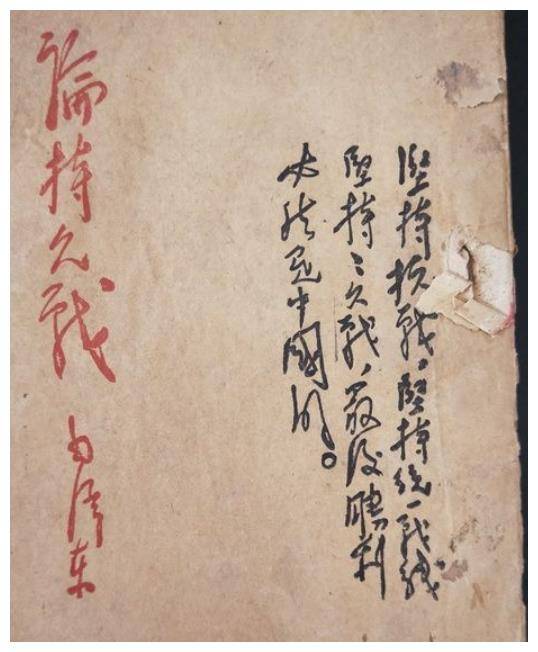 堅持抗戰，堅持統一戰線
堅持〻久戰，最後勝利
必然是中國的。
論持久戰 毛澤东